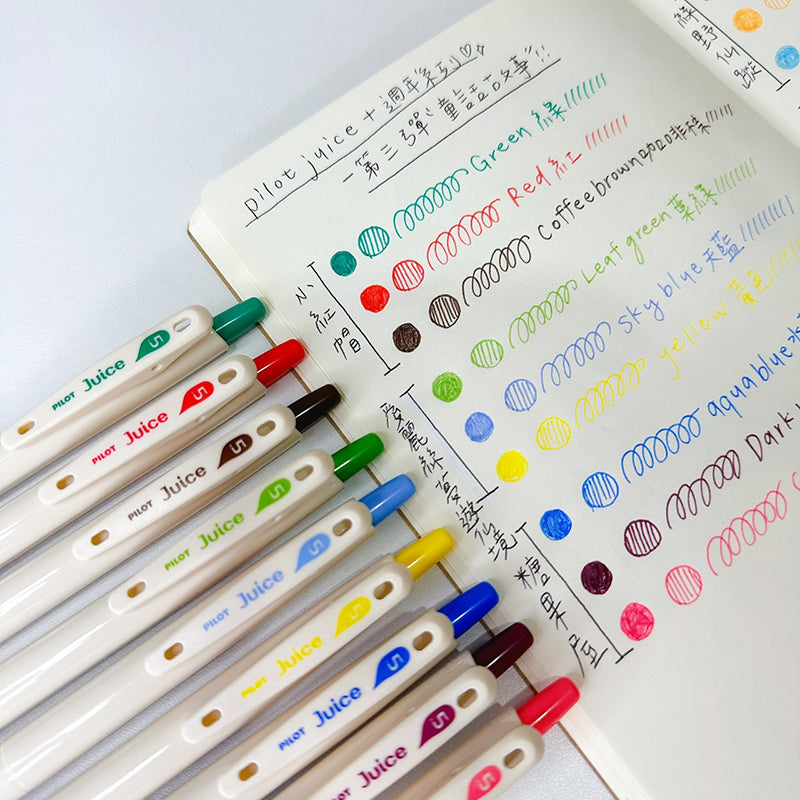 pilot juice + 週年系列♡
－第三彈 童話故事!!
Green 綠
Red 紅
Coffee brown 2020非稀
Leaf green 葉綠
Sky blue 天藍
yellow 黃色
aqua blue 水
Dark
小紅帽
愛麗絲夢遊仙境
糖果屋
綠野仙蹤
PILOT Juice 5
PILOT Juice 5
PILOT Juice 5
PILOT Juice 5
PILOT Juice 5
PILOT Juice 5
PILOT Juice 5
PILOT Juice 5
5